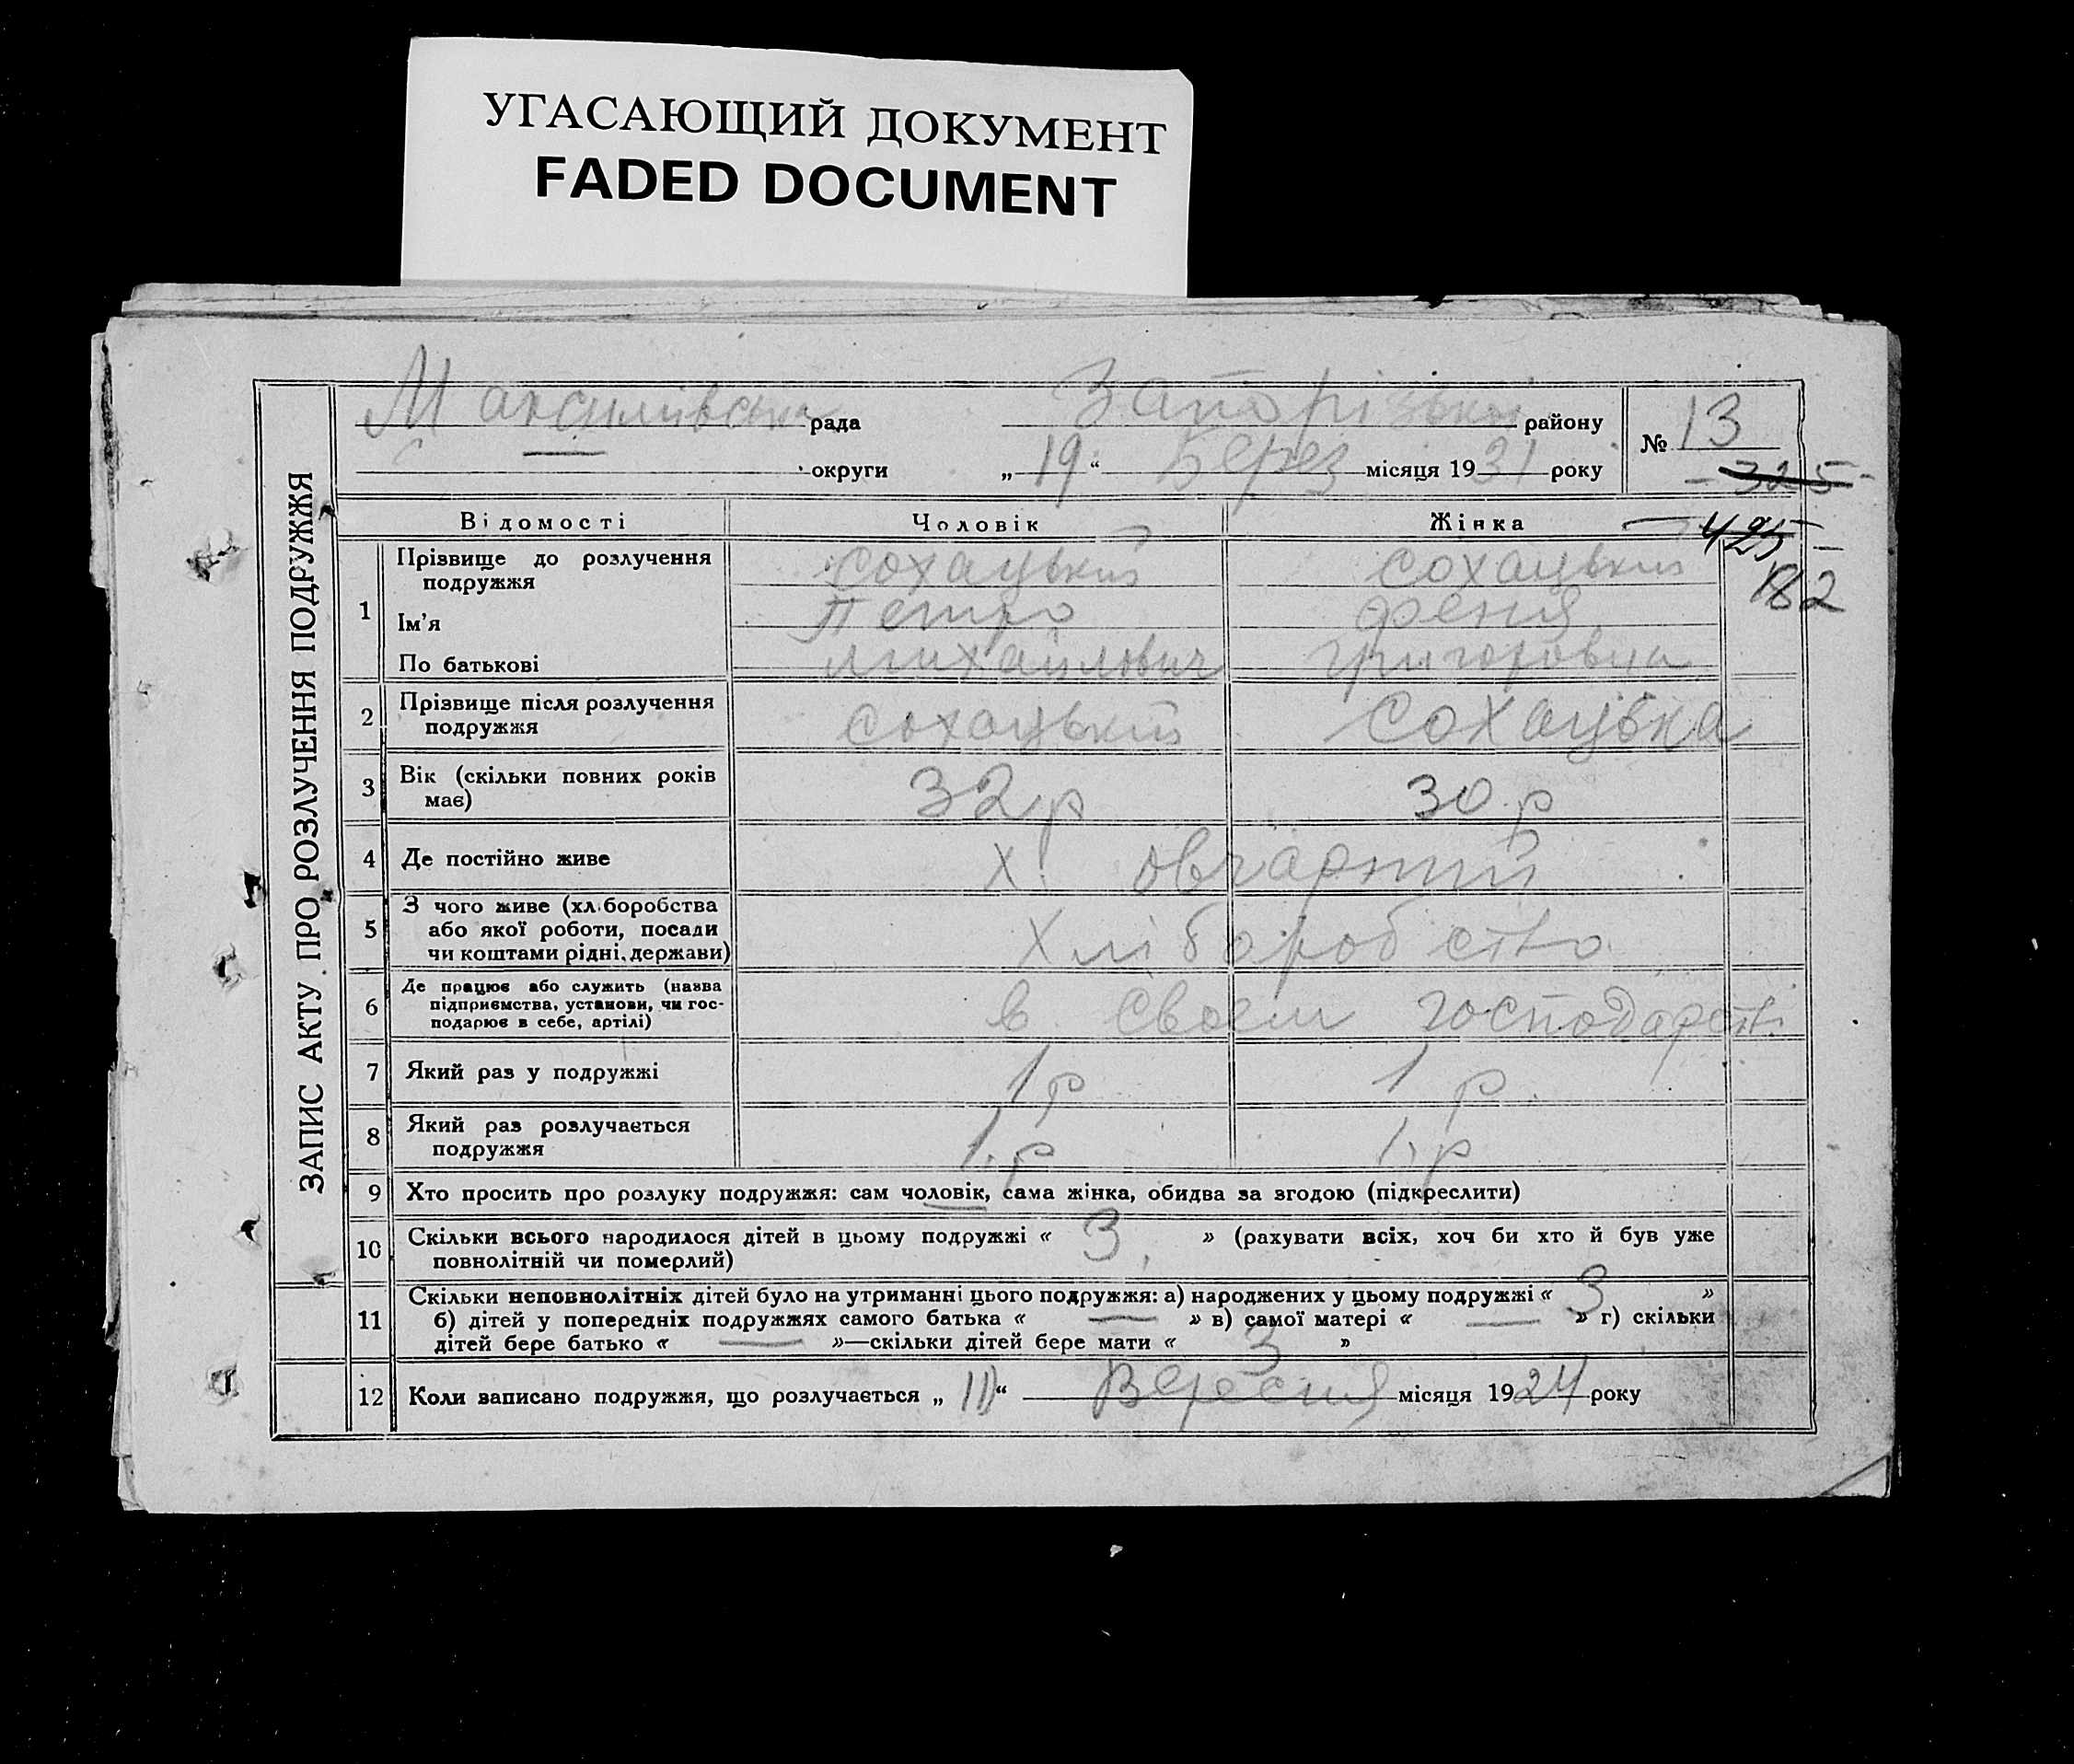 УГАСАЮЩИЙ ДОКУМЕНТ
FADED DOCUMENT
ЗАПИС АКТУ ПРО РОЗЛУЧЕННЯ ПОДРУЖЖЯ
рада Запорізький району № 13
округи „19“ Берез місяця 1931 року
325
425
182
Відомості Чоловік Жінка
1 Прізвище до розлучення подружжя Сохацький Сохацький
Ім'я Петро Феня
По батькові Михайлович Григоровна
2 Прізвище після розлучення подружжя Сохацький Сохацька
3 Вік (скільки повних років має) 32 р 30 р
4 Де постійно живе х. Овчарний
5 З чого живе (хл.боробства або якої роботи, посади чи коштами рідні, держави) Хліборобство
6 Де працює або служить (назва підприємства, установи, чи господарює в себе, артілі) в своем господарстві
7 Який раз у подружжі 1 р 1 р.
8 Який раз розлучається подружжя 1, р 1, р
9 Хто просить про розлуку подружжя: сам чоловік, сама жінка, обидва за згодою (підкреслити)
10 Скільки всього народилося дітей в цьому подружжі « 3 » (рахувати всіх, хоч би хто й був уже
повнолітній чи померлий)
11 Скільки неповнолітніх дітей було на утриманні цього подружжя: а) народжених у цьому подружжі « 3 »
б) дітей у попередніх подружжях самого батька « — » в) самої матері « — » г) скільки
дітей бере батько « — »—скільки дітей бере мати « 3 »
12 Коли записано подружжя, що розлучається Вересня місяця 1924 року